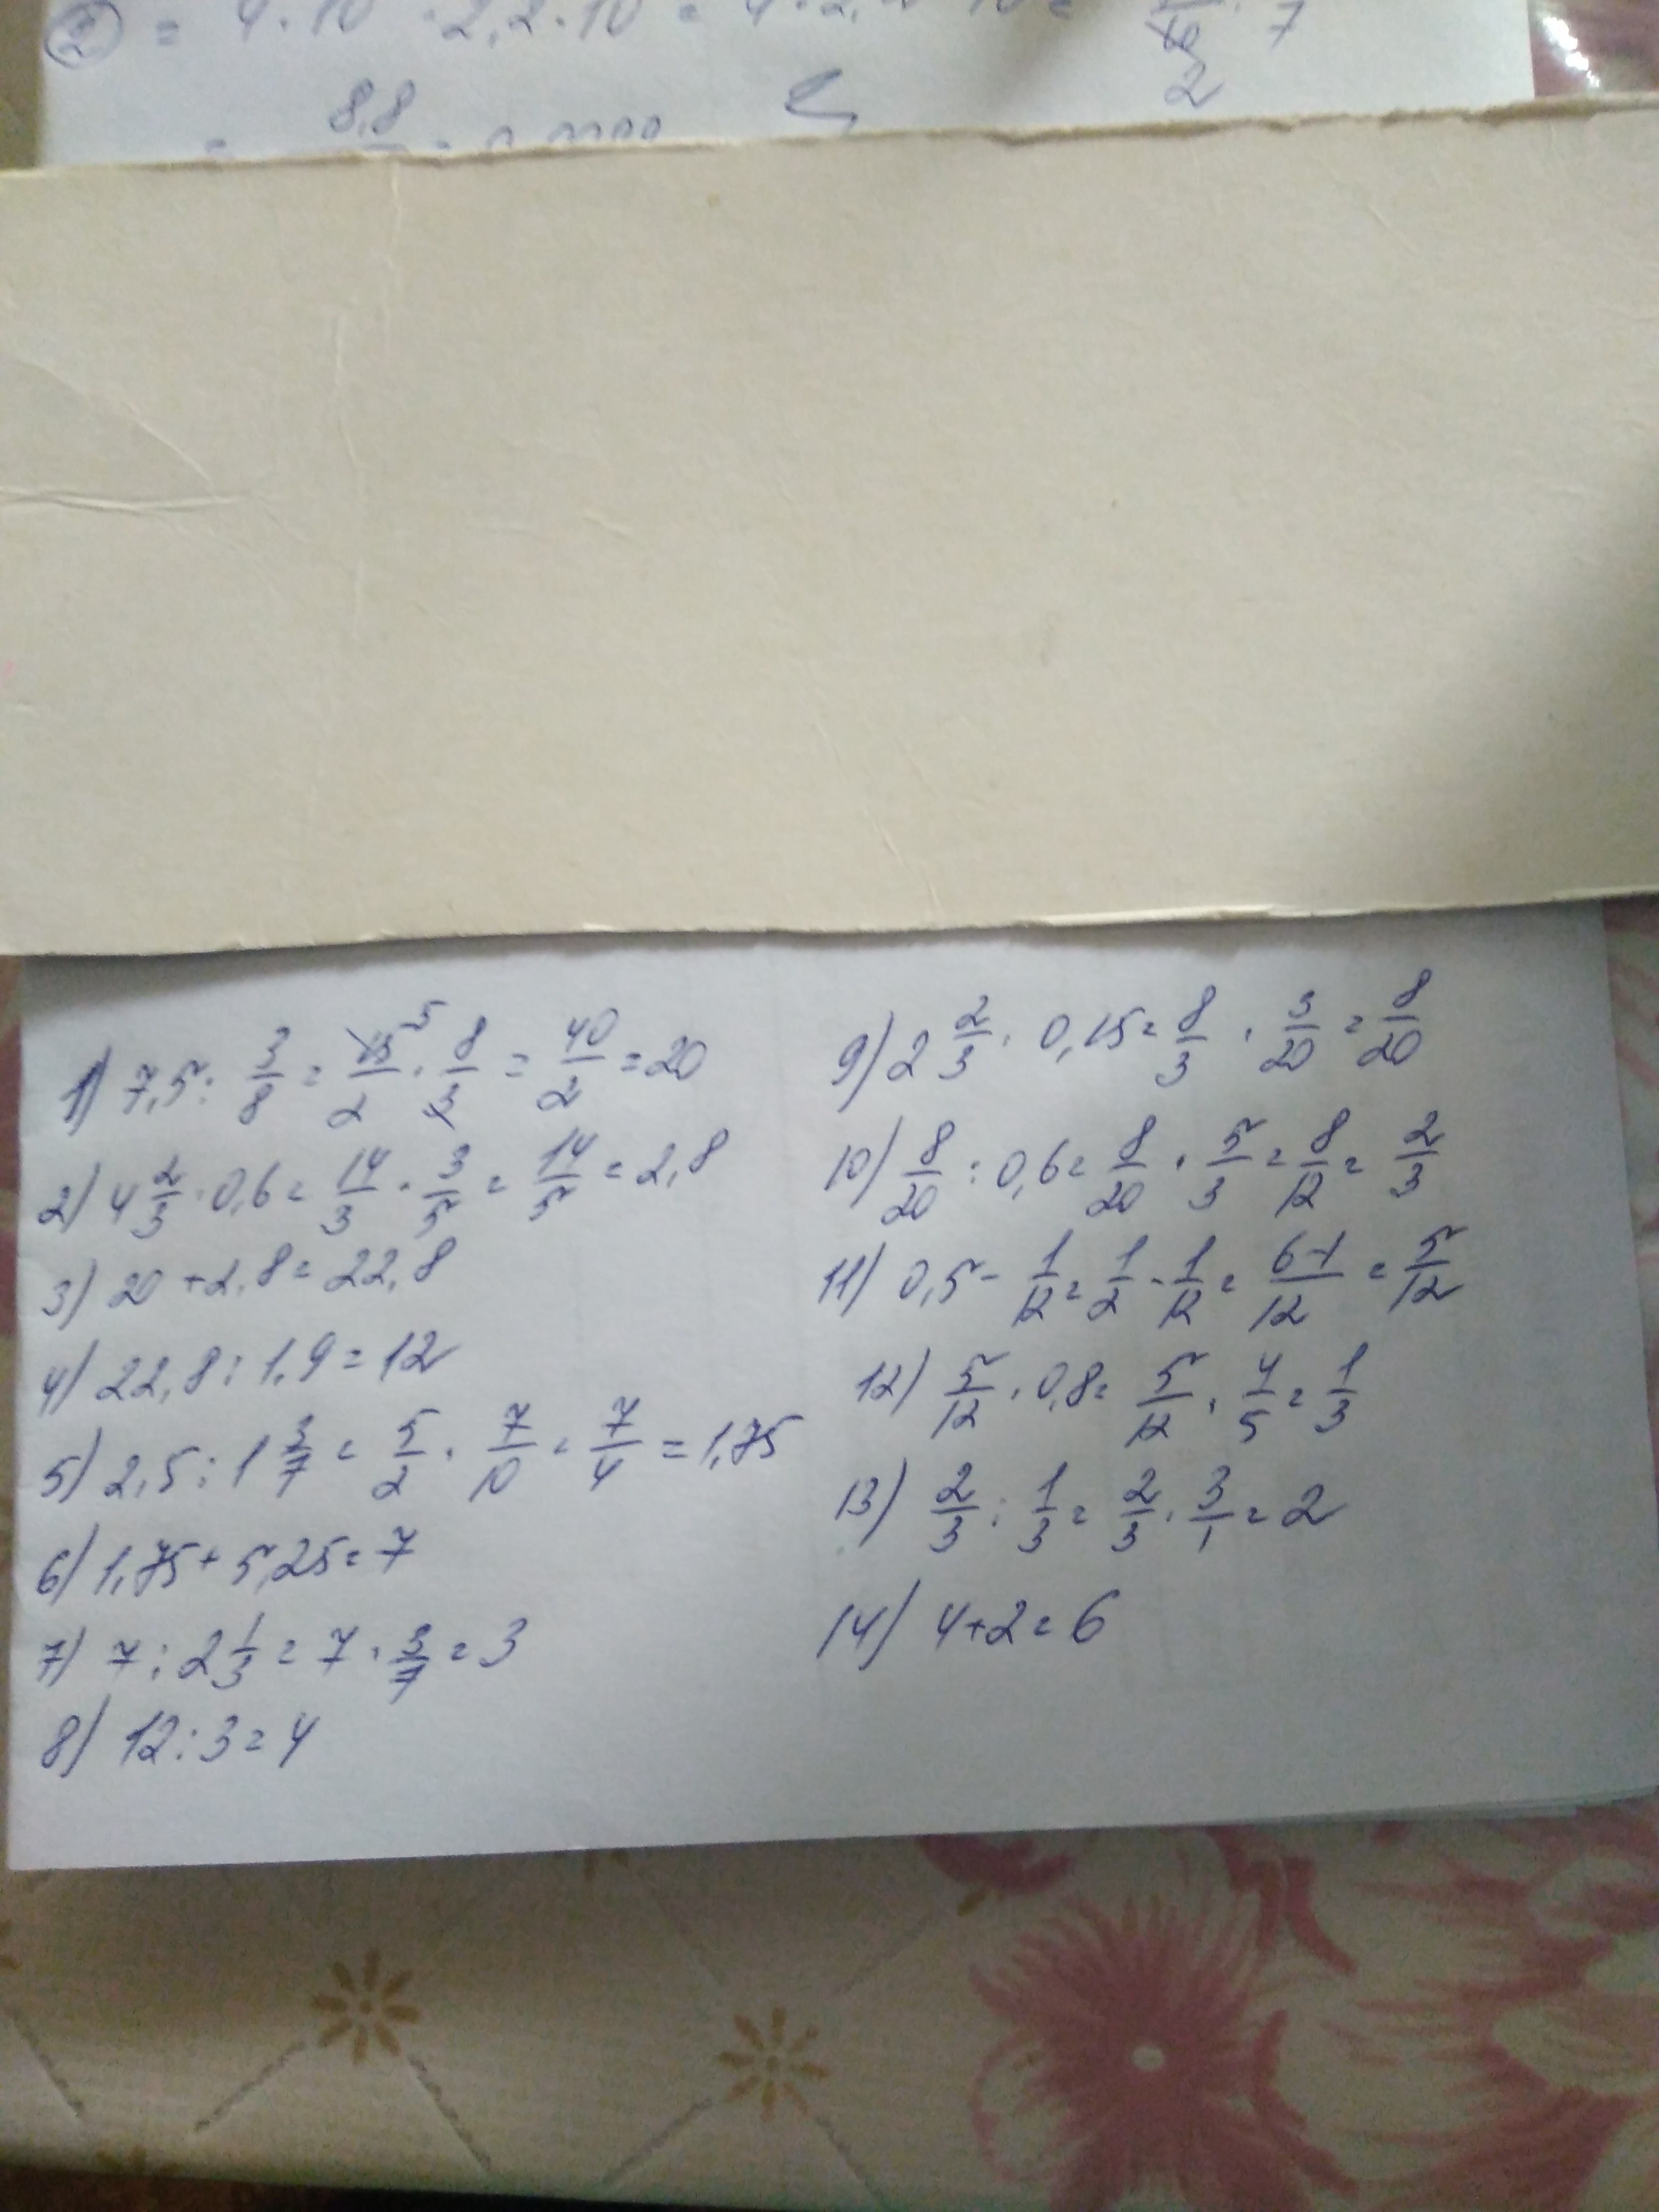 ② = 4·10 · 2,2·10 = 4·2,
8,8
2
7
1) 7,5 : 3/8 = 15/2 · 8/3 = 40/2 = 20
5
2) 4 2/3 · 0,6 = 14/3 · 3/5 = 14/5 = 2,8
3) 20 + 2,8 = 22,8
4) 22,8 : 1,9 = 12
5) 2,5 : 1 3/7 = 5/2 · 7/10 = 7/4 = 1,75
6) 1,75 + 5,25 = 7
7) 7 : 2 1/3 = 7 · 3/7 = 3
8) 12 : 3 = 4
9) 2 2/3 · 0,15 = 8/3 · 3/20 = 8/20
10) 8/20 : 0,6 = 8/20 · 5/3 = 8/12 = 2/3
11) 0,5 - 1/12 = 1/2 - 1/12 = 6-1/12 = 5/12
12) 5/12 · 0,8 = 5/12 · 4/5 = 1/3
13) 2/3 : 1/3 = 2/3 · 3/1 = 2
14) 4+2 = 6